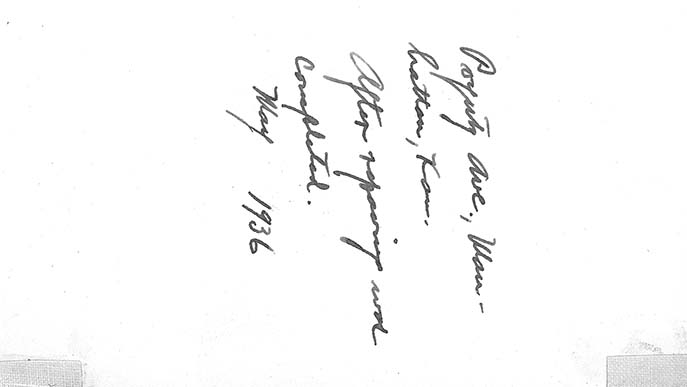 Poyntz Ave., Man-
hattan, Kan.
After repaving was
completed.
May 1936